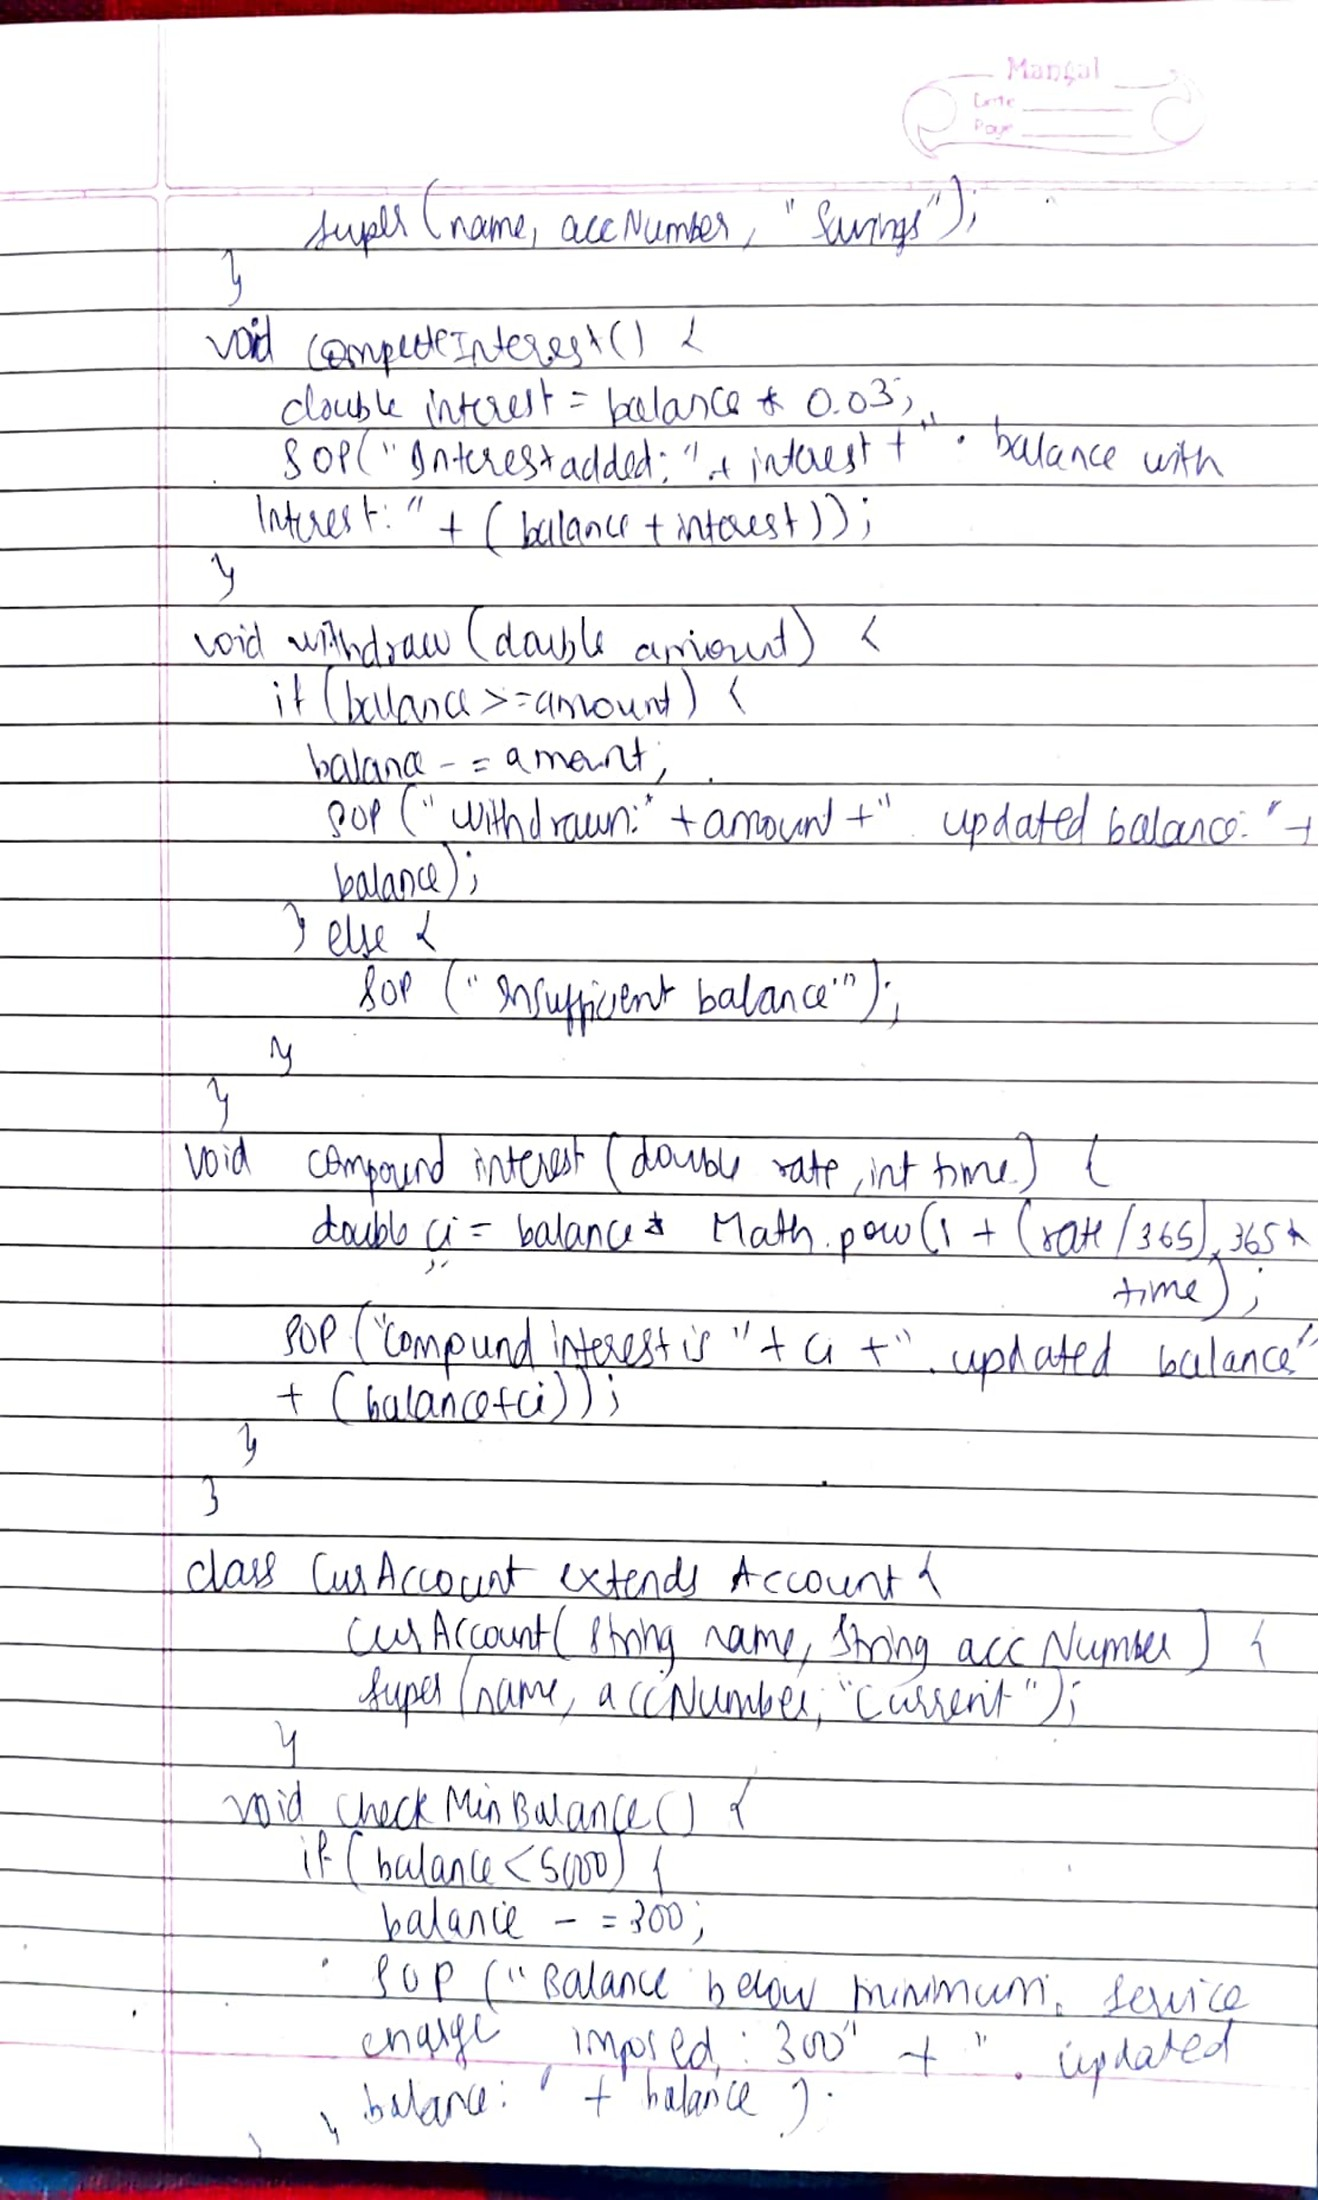 Mangal
Date
Page
super (name, accNumber, "Savings");
}
void computeInterest() {
double interest = balance * 0.03;
SOP("Interest added: " + interest + ". balance with
Interest: " + (balance + interest));
}
void withdraw (double amount) {
if (balance >= amount) {
balance -= amount;
SOP ("withdrawn:" + amount + ". updated balance: " +
balance);
} else {
SOP ("Insufficient balance");
}
}
void compound interest (double rate, int time) {
double ci = balance * Math.pow(1 + (rate/365), 365 *
time);
SOP ("Compound interest is " + ci + ". updated balance"
+ (balance+ci));
}
}
class CurAccount extends Account {
CurAccount( String name, String accNumber) {
super (name, accNumber, "Current");
}
void checkMinBalance() {
if (balance < 5000) {
balance -= 300;
SOP ("Balance below minimum. Service
charge imposed : 300" + ". updated
balance: " + balance ).
} }